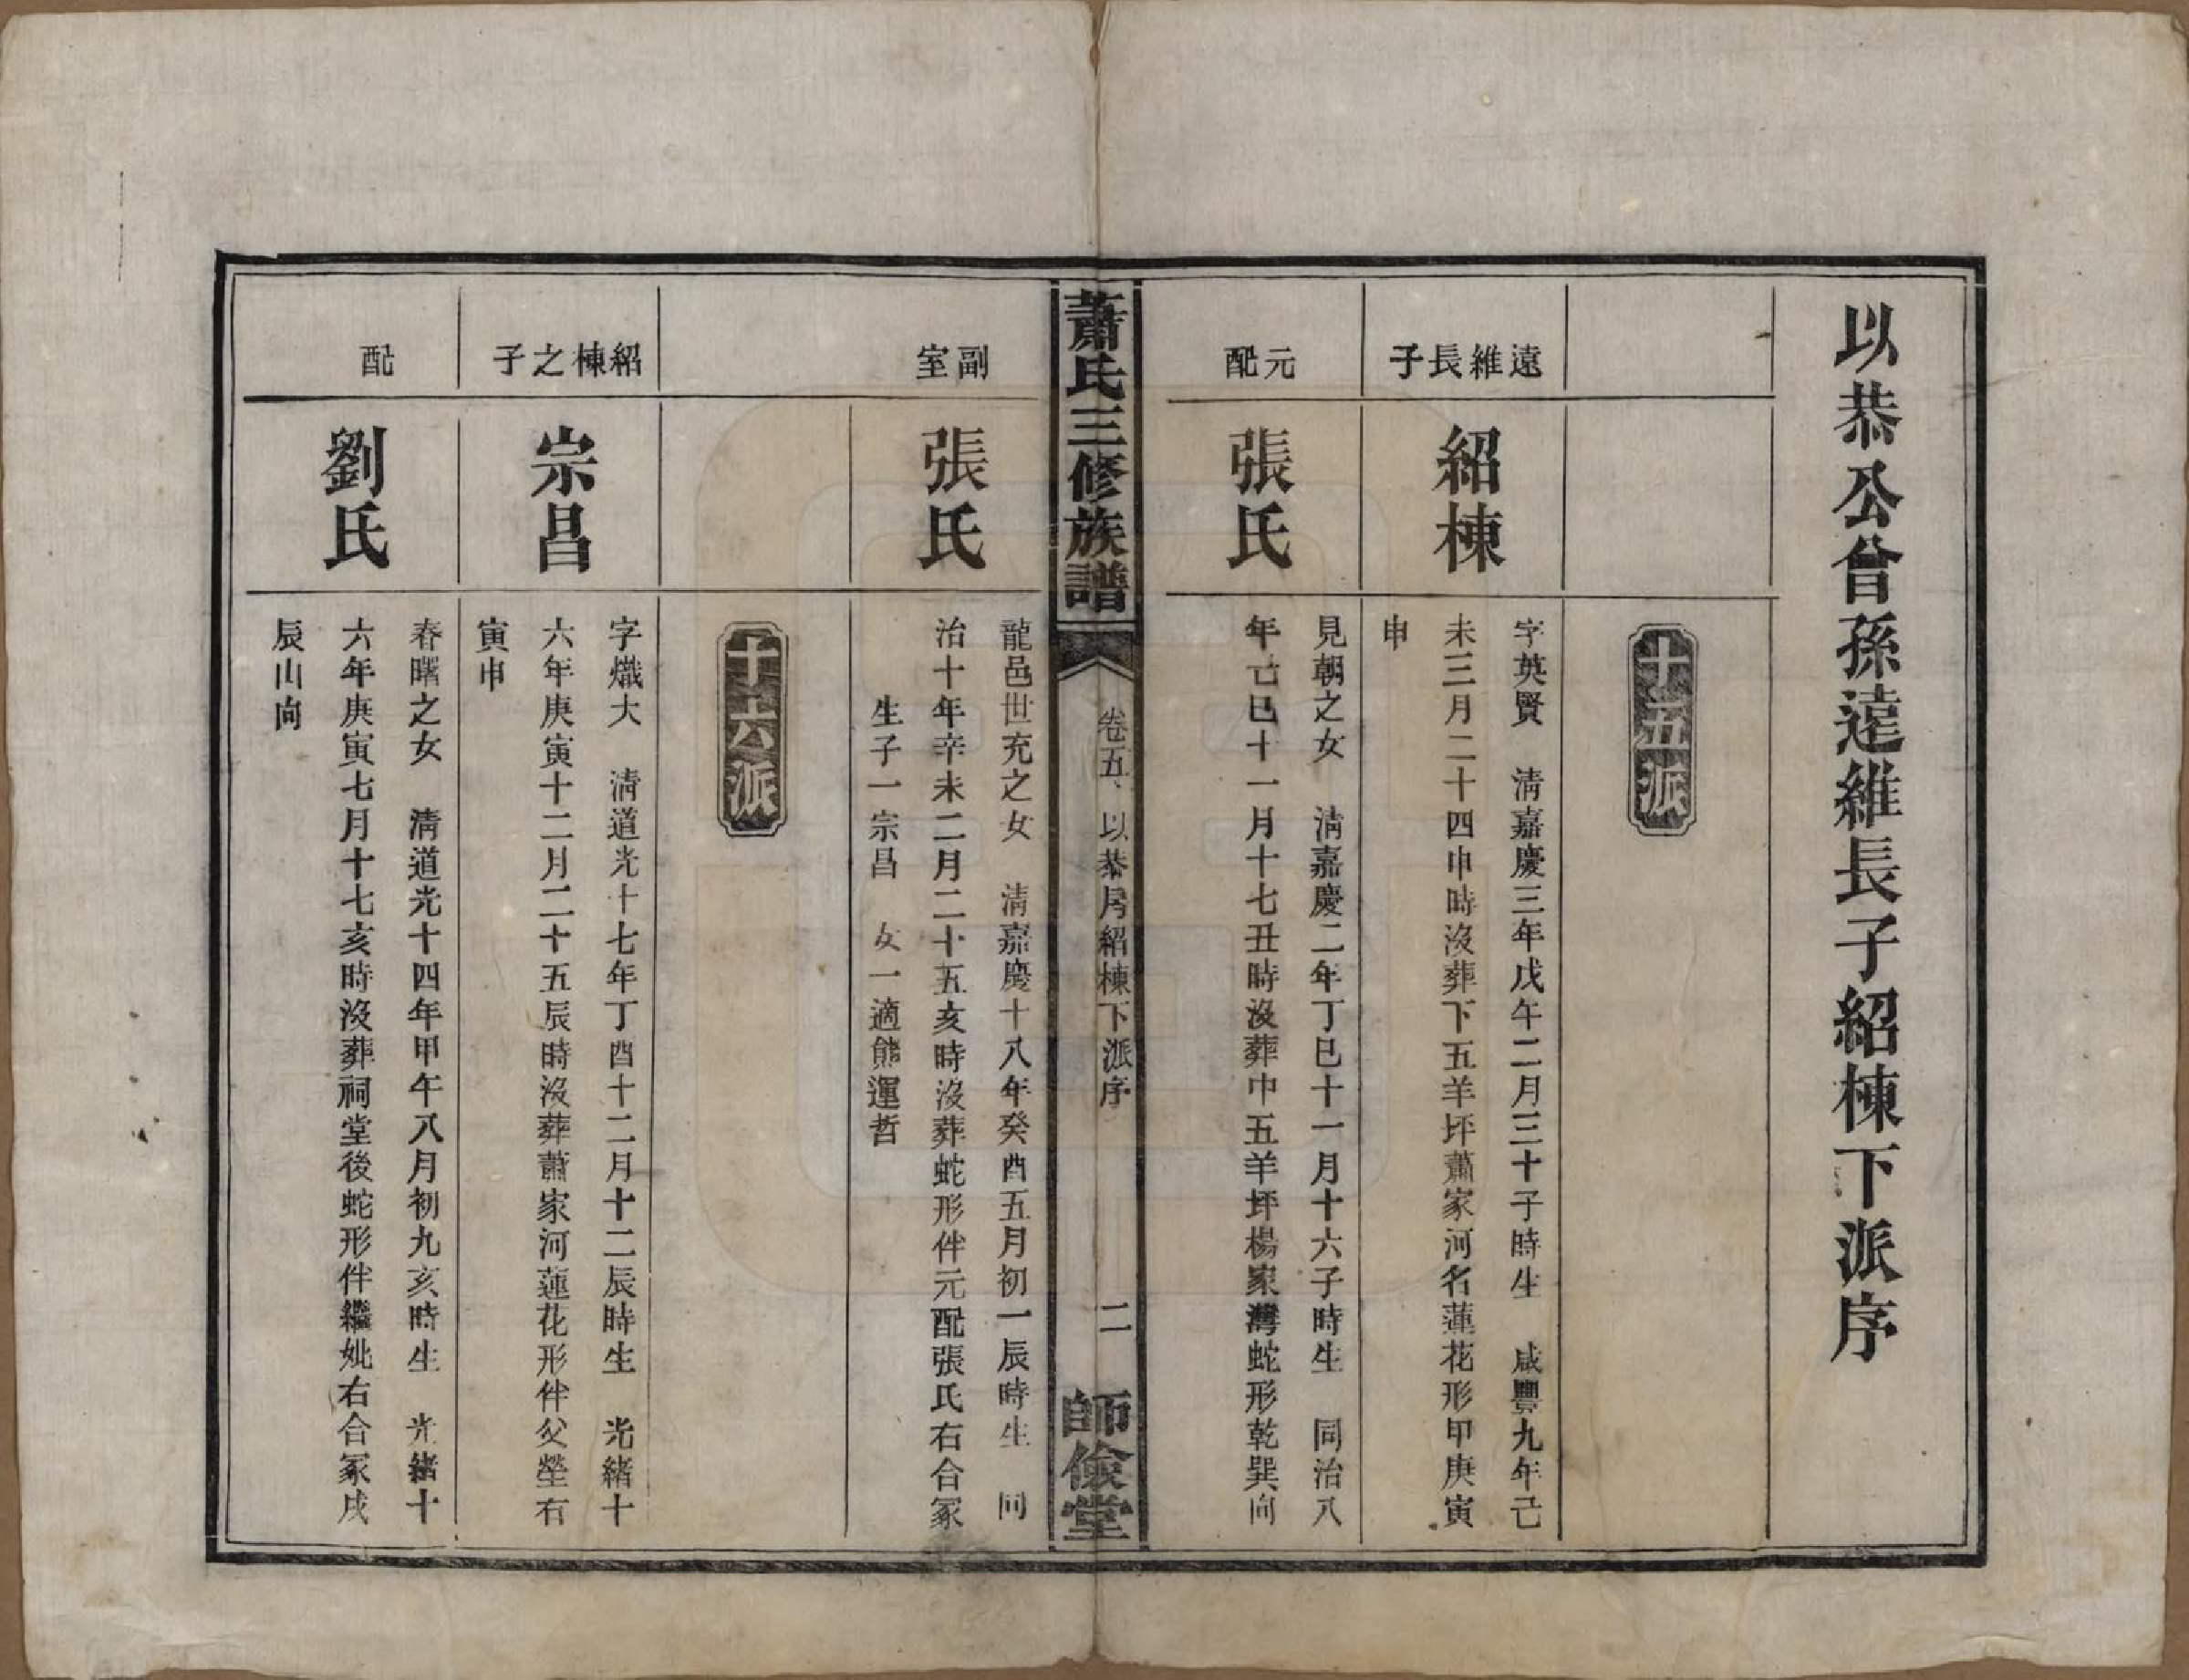 以恭公曾孫遠維長子紹棟下派序
十五派
遠維長子
紹棟
字英賢　清嘉慶三年戊午二月三十子時生　咸豐九年己
未三月二十四申時沒葬下五羊坪蕭家河名蓮花形甲庚寅
申
元配
張氏
見朝之女　清嘉慶二年丁巳十一月十六子時生　同治八
年己巳十一月十七丑時沒葬中五羊坪楊家灣蛇形乾巽向
蕭氏三修族譜
卷五、以恭房紹棟下派序
二
師儉堂
副室
張氏
龍邑世充之女　清嘉慶十八年癸酉五月初一辰時生　同
治十年辛未二月二十五亥時沒葬蛇形伴元配張氏右合冢
生子一宗昌　女一適熊運哲
十六派
紹棟之子
宗昌
字熾大　清道光十七年丁酉十二月十二辰時生　光緒十
六年庚寅十二月二十五辰時沒葬蕭家河蓮花形伴父塋右
寅申
配
劉氏
春曙之女　清道光十四年甲午八月初九亥時生　光緒十
六年庚寅七月十七亥時沒葬祠堂後蛇形伴繼妣右合冢戌
辰山向